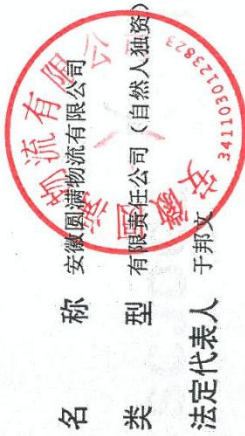 名称 安徽圆满物流有限公司
类型 有限责任公司（自然人独资）
法定代表人 于邦文
安徽圆满物流有限公
3411030123823